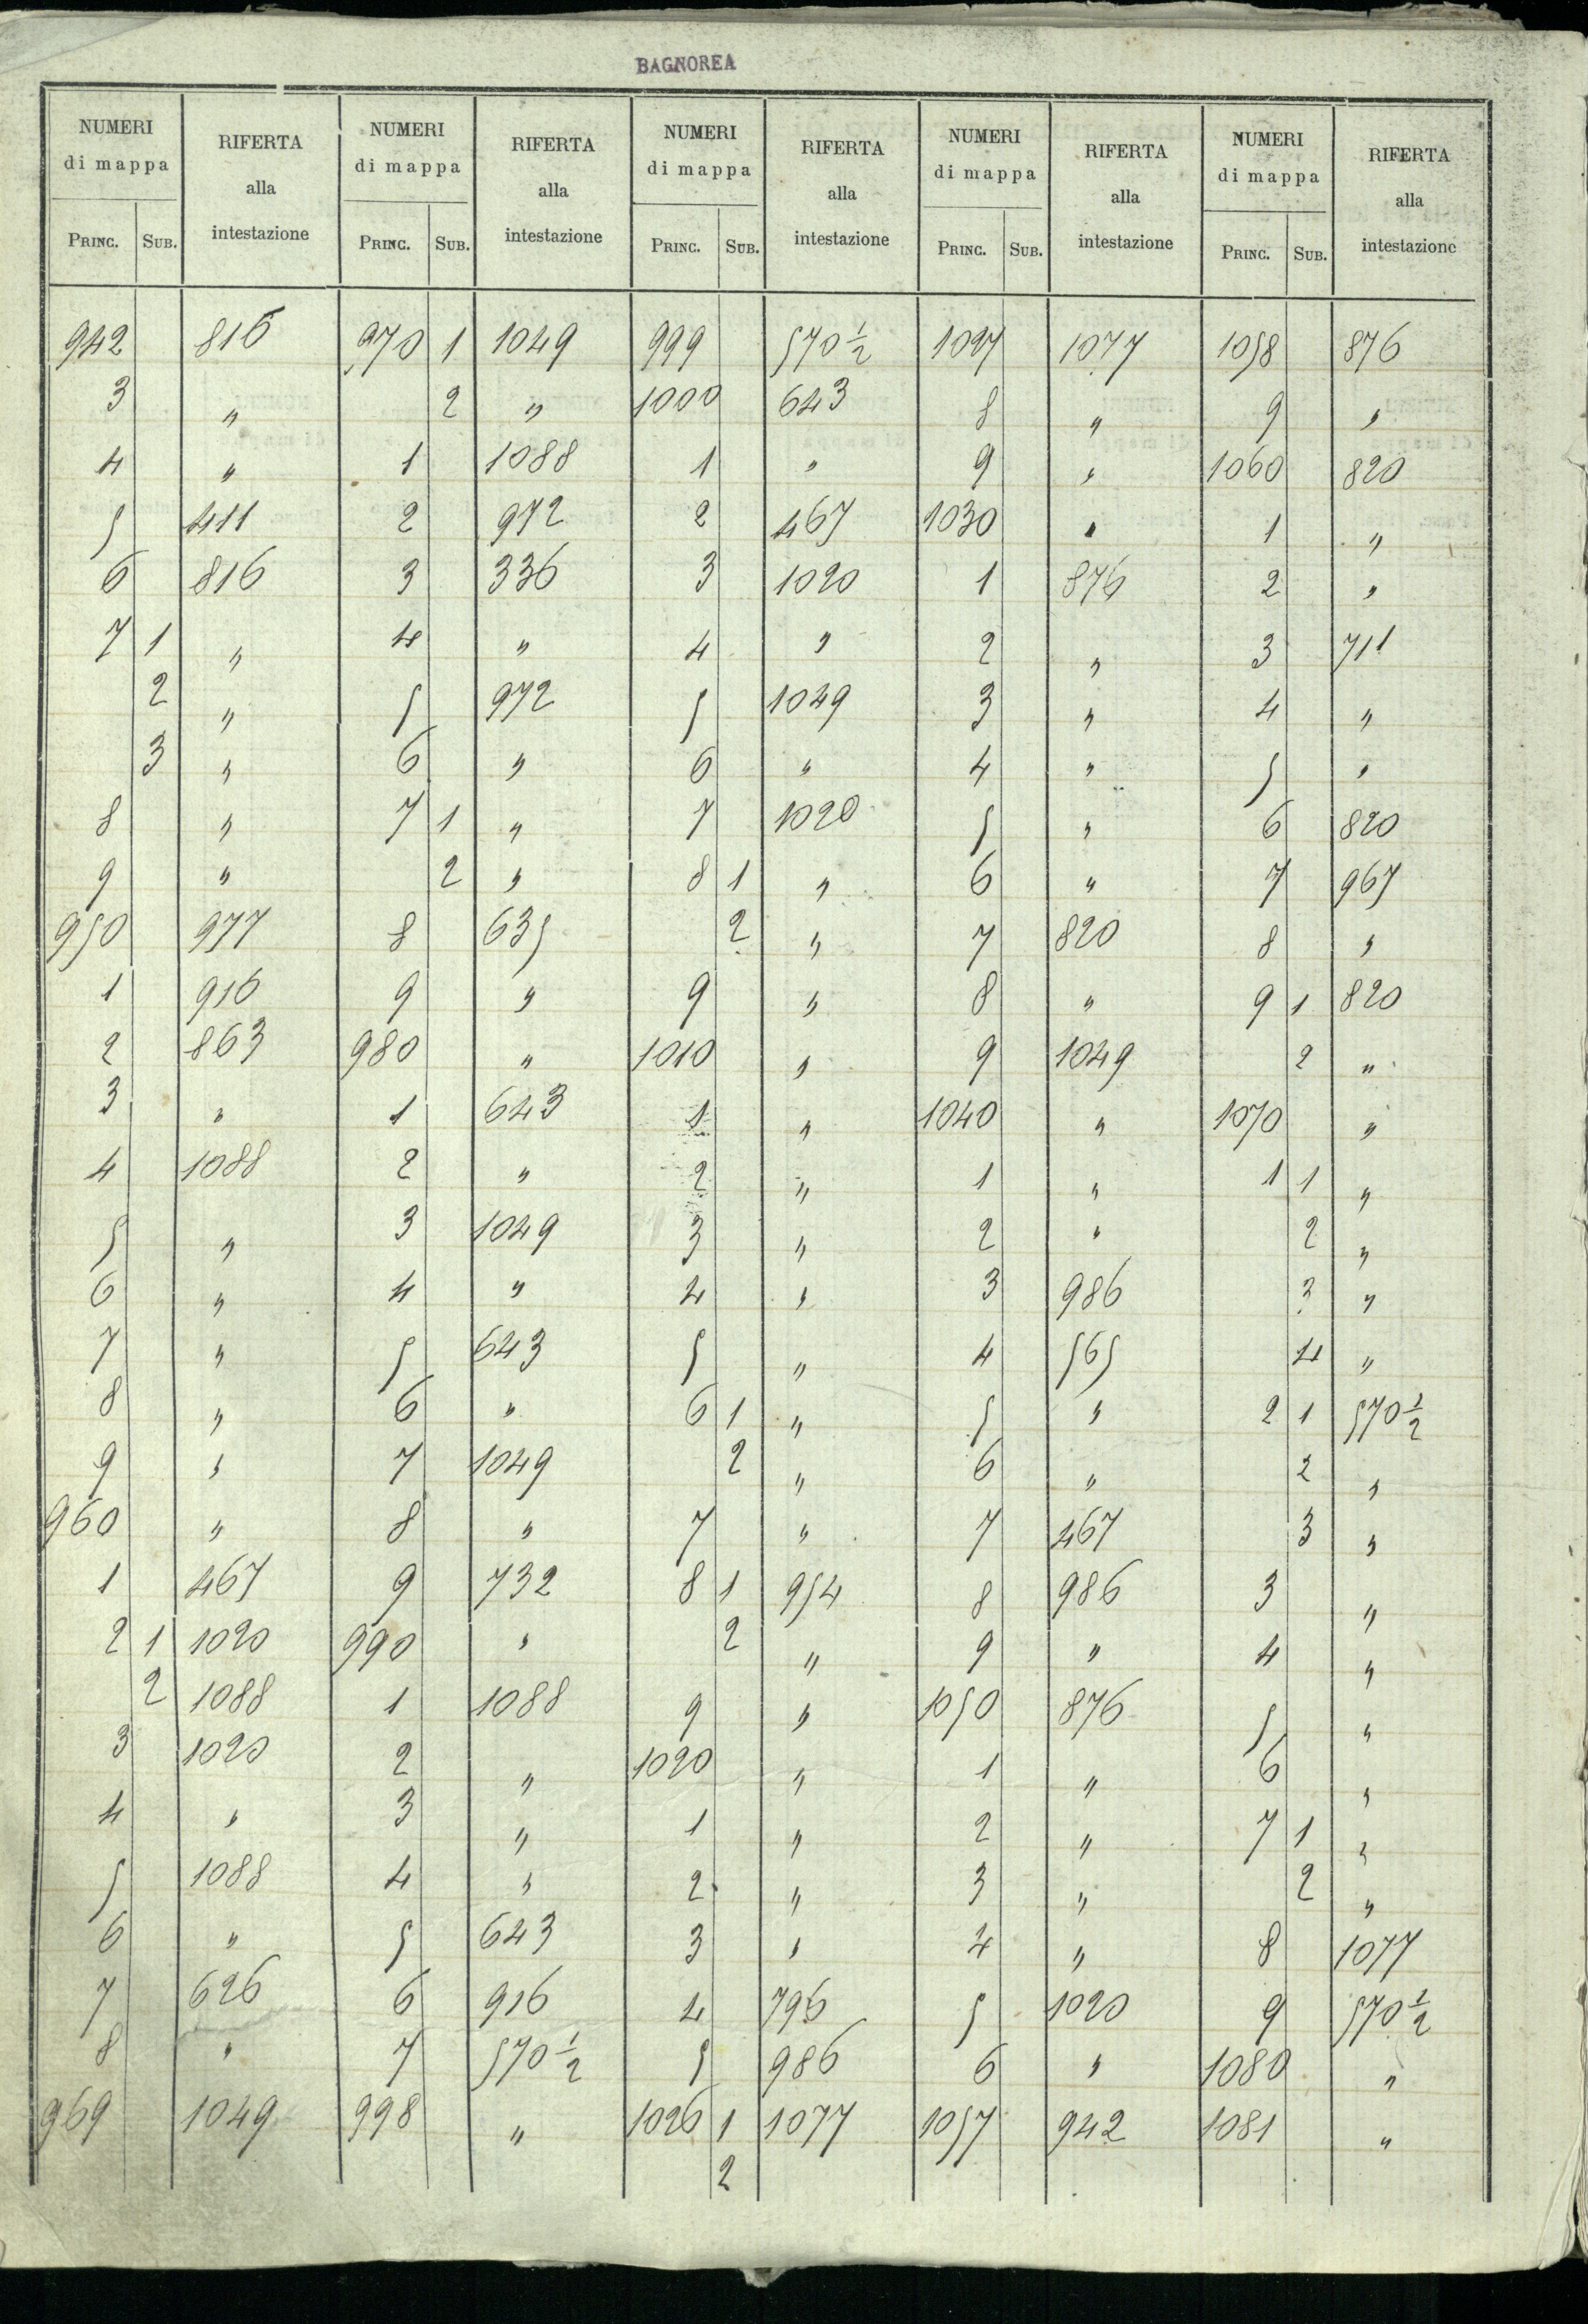 BAGNOREA
NUMERI di mappa RIFERTA alla intestazione NUMERI di mappa RIFERTA alla intestazione NUMERI di mappa RIFERTA alla intestazione NUMERI di mappa RIFERTA alla intestazione NUMERI di mappa RIFERTA alla intestazione
PRINC. SUB. PRINC. SUB. PRINC. SUB. PRINC. SUB. PRINC. SUB.
942 816 970 1 1049 999 570 1/2 1027 1077 1058 876
3 " 2 " 1000 643 8 " 9 "
4 " 1 1088 1 " 9 " 1060 820
5 411 2 972 2 467 1030 " 1 "
6 816 3 336 3 1020 1 876 2 "
7 1 " 4 " 4 " 2 " 3 711
2 " 5 972 5 1049 3 " 4 "
3 " 6 " 6 " 4 " 5 "
8 " 7 1 " 7 1020 5 " 6 820
9 " 2 " 8 1 " 6 " 7 967
950 977 8 635 2 " 7 820 8 "
1 916 9 " 9 " 8 " 9 1 820
2 863 980 " 1010 " 9 1049 2 "
3 " 1 643 1 " 1040 " 1070 "
4 1088 2 " 2 " 1 " 1 1 "
5 " 3 1049 3 " 2 " 2 "
6 " 4 " 4 " 3 986 3 "
7 " 5 643 5 " 4 565 4 "
8 " 6 " 6 1 " 5 " 2 1 570 1/2
9 " 7 1049 2 " 6 " 2 "
960 " 8 " 7 " 7 467 3 "
1 467 9 732 8 1 954 8 986 3 "
2 1 1020 990 " 2 " 9 " 4 "
2 1088 1 1088 9 " 1050 876 5 "
3 1020 2 " 1020 " 1 " 6 "
4 " 3 " 1 " 2 " 7 1 "
5 1088 4 " 2 " 3 " 2 "
6 " 5 643 3 " 4 " 8 1077
7 626 6 916 4 796 5 1020 9 570 1/2
8 " 7 570 1/2 5 986 6 " 1080 "
969 1049 998 " 1026 1 1077 1057 942 1081 "
2